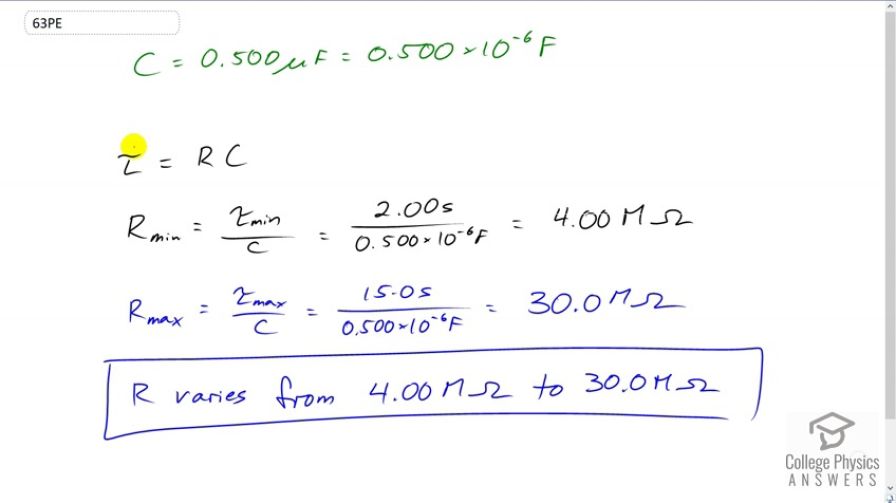 63PE
C = 0.500 μF = 0.500 × 10⁻⁶ F
τ = R C
R min = τ min / C = 2.00 s / 0.500 × 10⁻⁶ F = 4.00 M Ω
R max = τ max / C = 15.0 s / 0.500 × 10⁻⁶ F = 30.0 M Ω
R varies from 4.00 M Ω to 30.0 M Ω
College Physics
ANSWERS